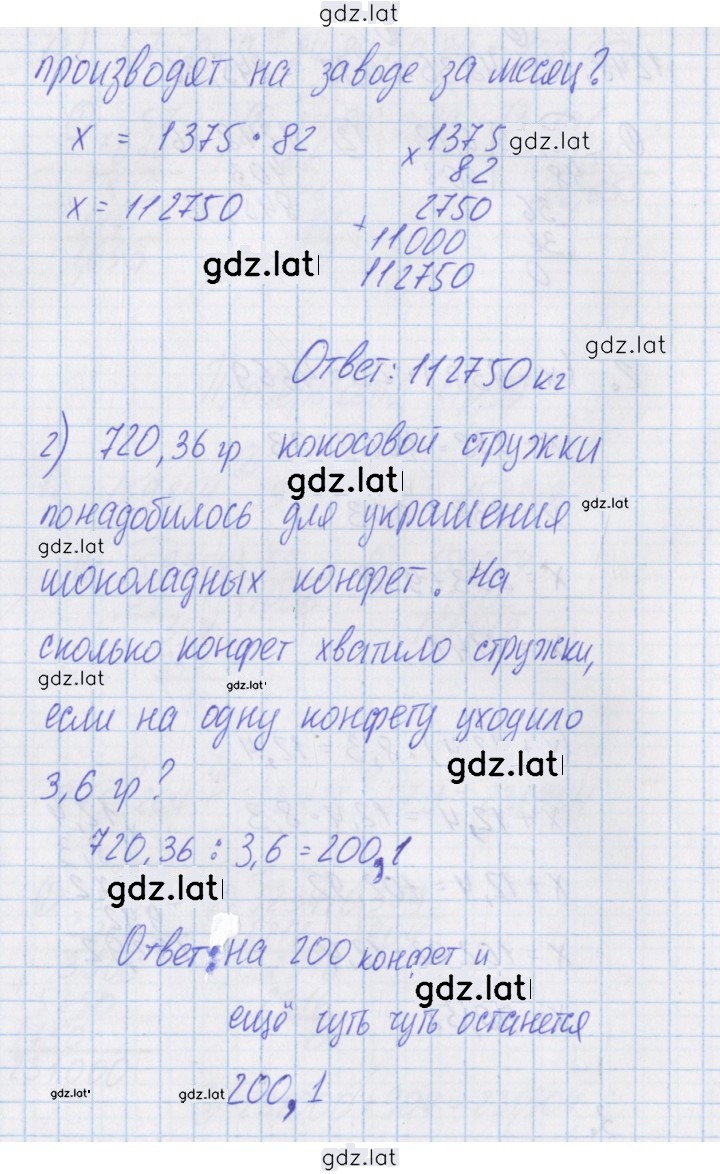 gdz.lat
производят на заводе за месяц?
x = 1375 · 82
1375 gdz.lat
× 82
x = 112750
2750
+ 11000
gdz.lat
112750
gdz.lat
Ответ: 112750 кг
г) 720,36 гр кокосовой стружки
gdz.lat
понадобилось для украшения
gdz.lat
gdz.lat
шоколадных конфет. На
сколько конфет хватило стружки,
gdz.lat
gdz.lat
если на одну конфету уходило
gdz.lat
3,6 гр?
720,36 : 3,6 = 200,1
gdz.lat
Ответ: на 200 конфет и
gdz.lat
ещё чуть чуть останется
gdz.lat gdz.lat 200,1
gdz.lat